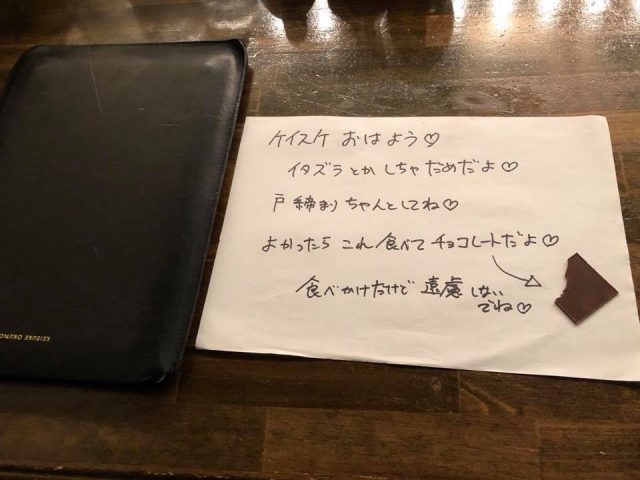 ケイスケ おはよう♡
イタズラとか しちゃだめだよ♡
戸締まりちゃんとしてね♡
よかったら これ食べて チョコレートだよ♡
食べかけだけど 遠慮しない
でね♡
KEISUKE OKUNO